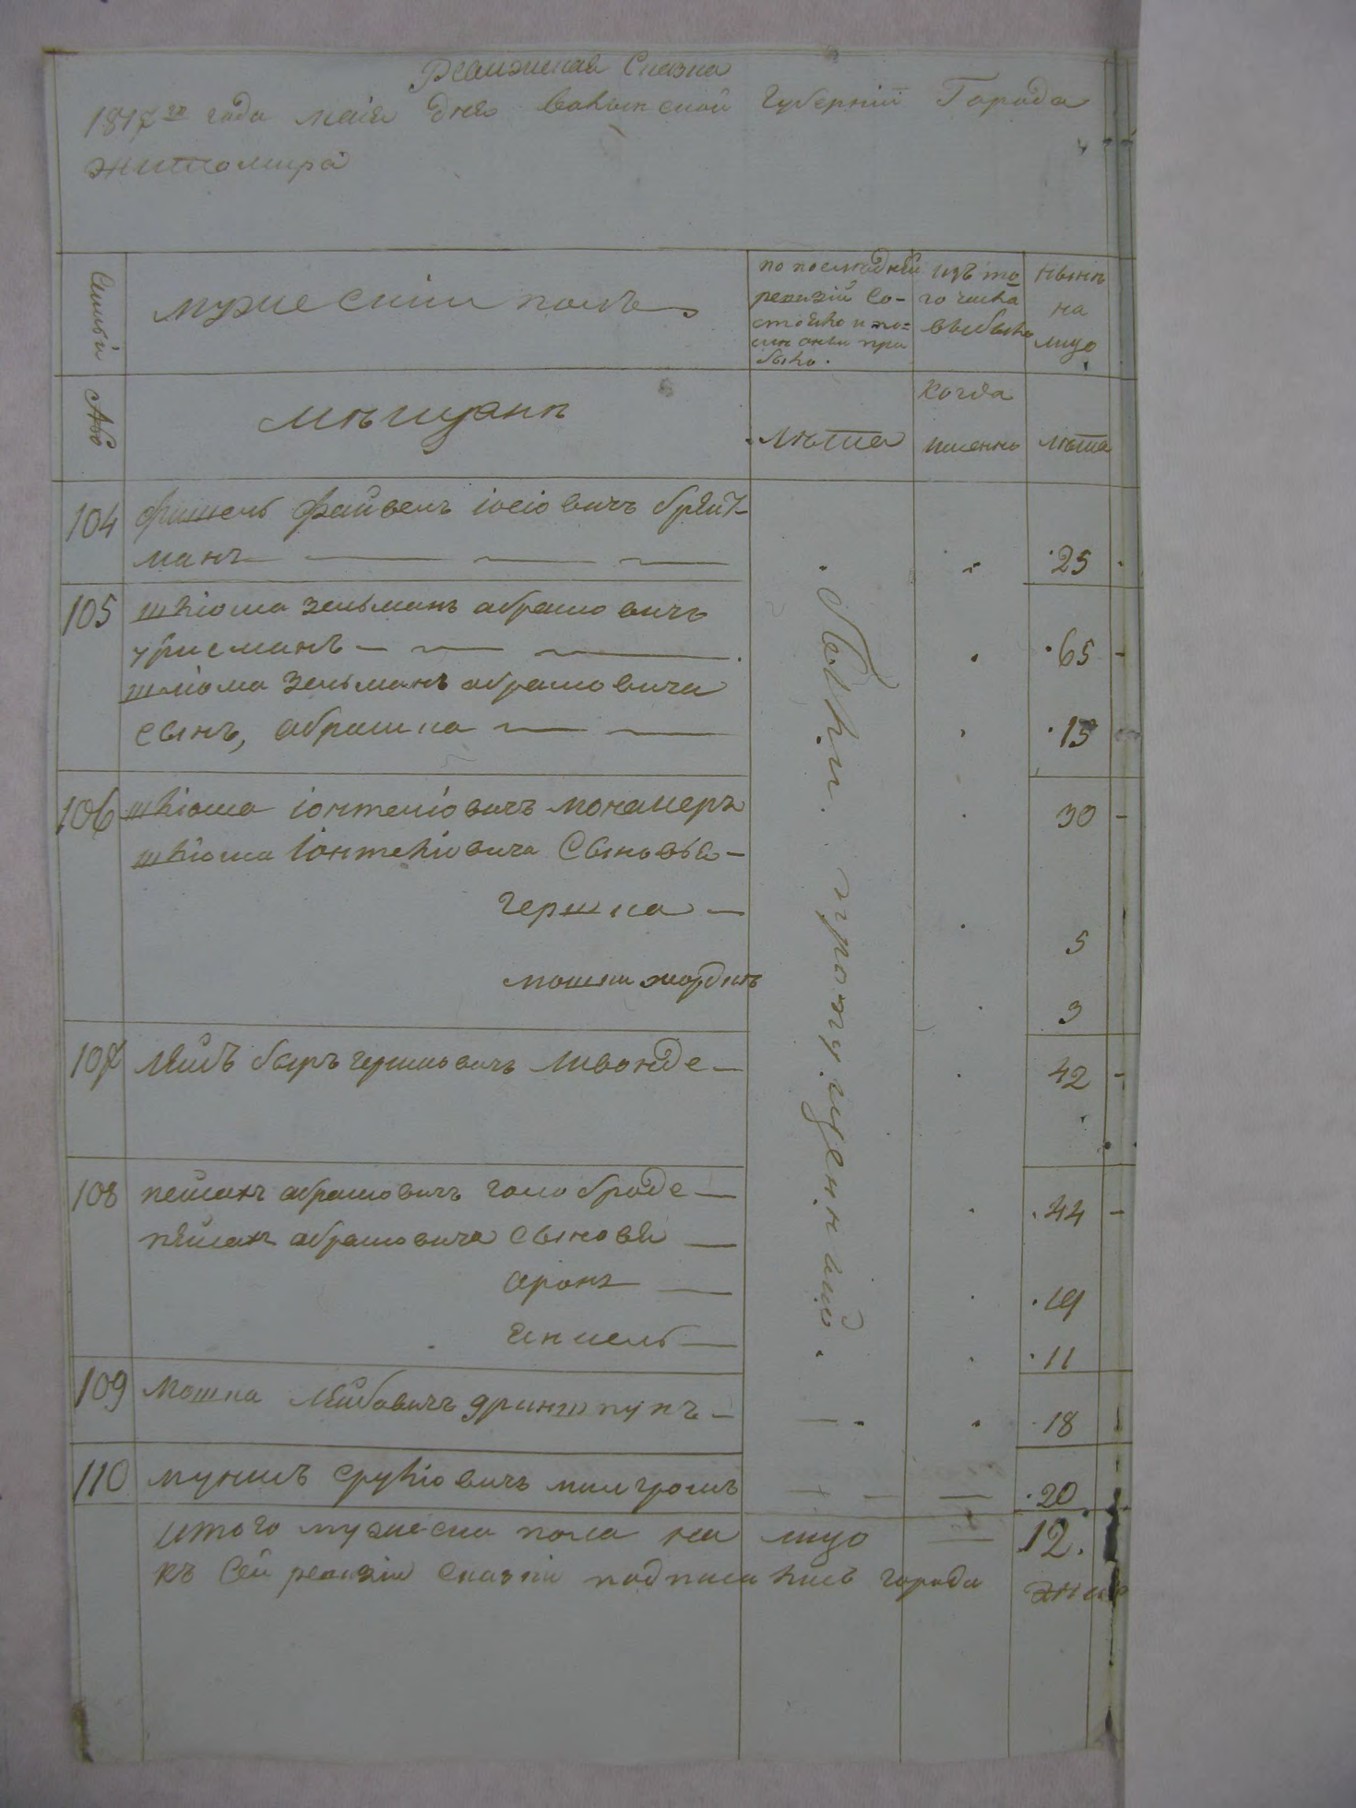 Ревижская Сказка
1817го года маія дня Волынской Губерніи Города
Житомира
Семьи
мужескій полъ
по последней
ревизіи со-
стояло и по-
сле оныи при
было.
изъ то
го числа
выбыло
ныне
на
лицо
№
мещане
лета
когда
именно
лета
104 фишель файвель іосіовичъ брейт-
манъ 25
105 шліома зельманъ абрамовичъ
65
шліома зельманъ абрамовича
сынъ, абрашка 15
106 шліома іонтеліовичъ 30
шліома іонтеліовича Сыновья
гершка 5
мошка мордко 3
107 лейбъ беръ гершковичъ 42
108 пейсахъ абрамовичъ голоброде 44
пейсахъ абрамовича сыновя
аронъ 19
янкель 11
109 Мошка лейбовичъ 18
110 сруліовичъ милгромъ 20
были пропущенны
итого мужеска пола на лицо 12.
къ сей ревизіи сказки подписались города жит